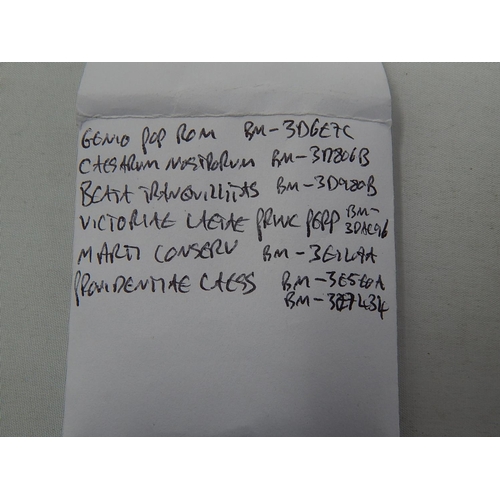 GENIO POP ROM BM-3D6E7C
CAESARUM NOSTRORUM BM-3D806B
BEATA TRANQUILLITAS BM-3D980B
VICTORIAE LAETAE PRINC PERP BM-
3DAC96
MARTI CONSERV
PROVIDENTIAE CAESS BM-3E5E0A
BM-3E7434